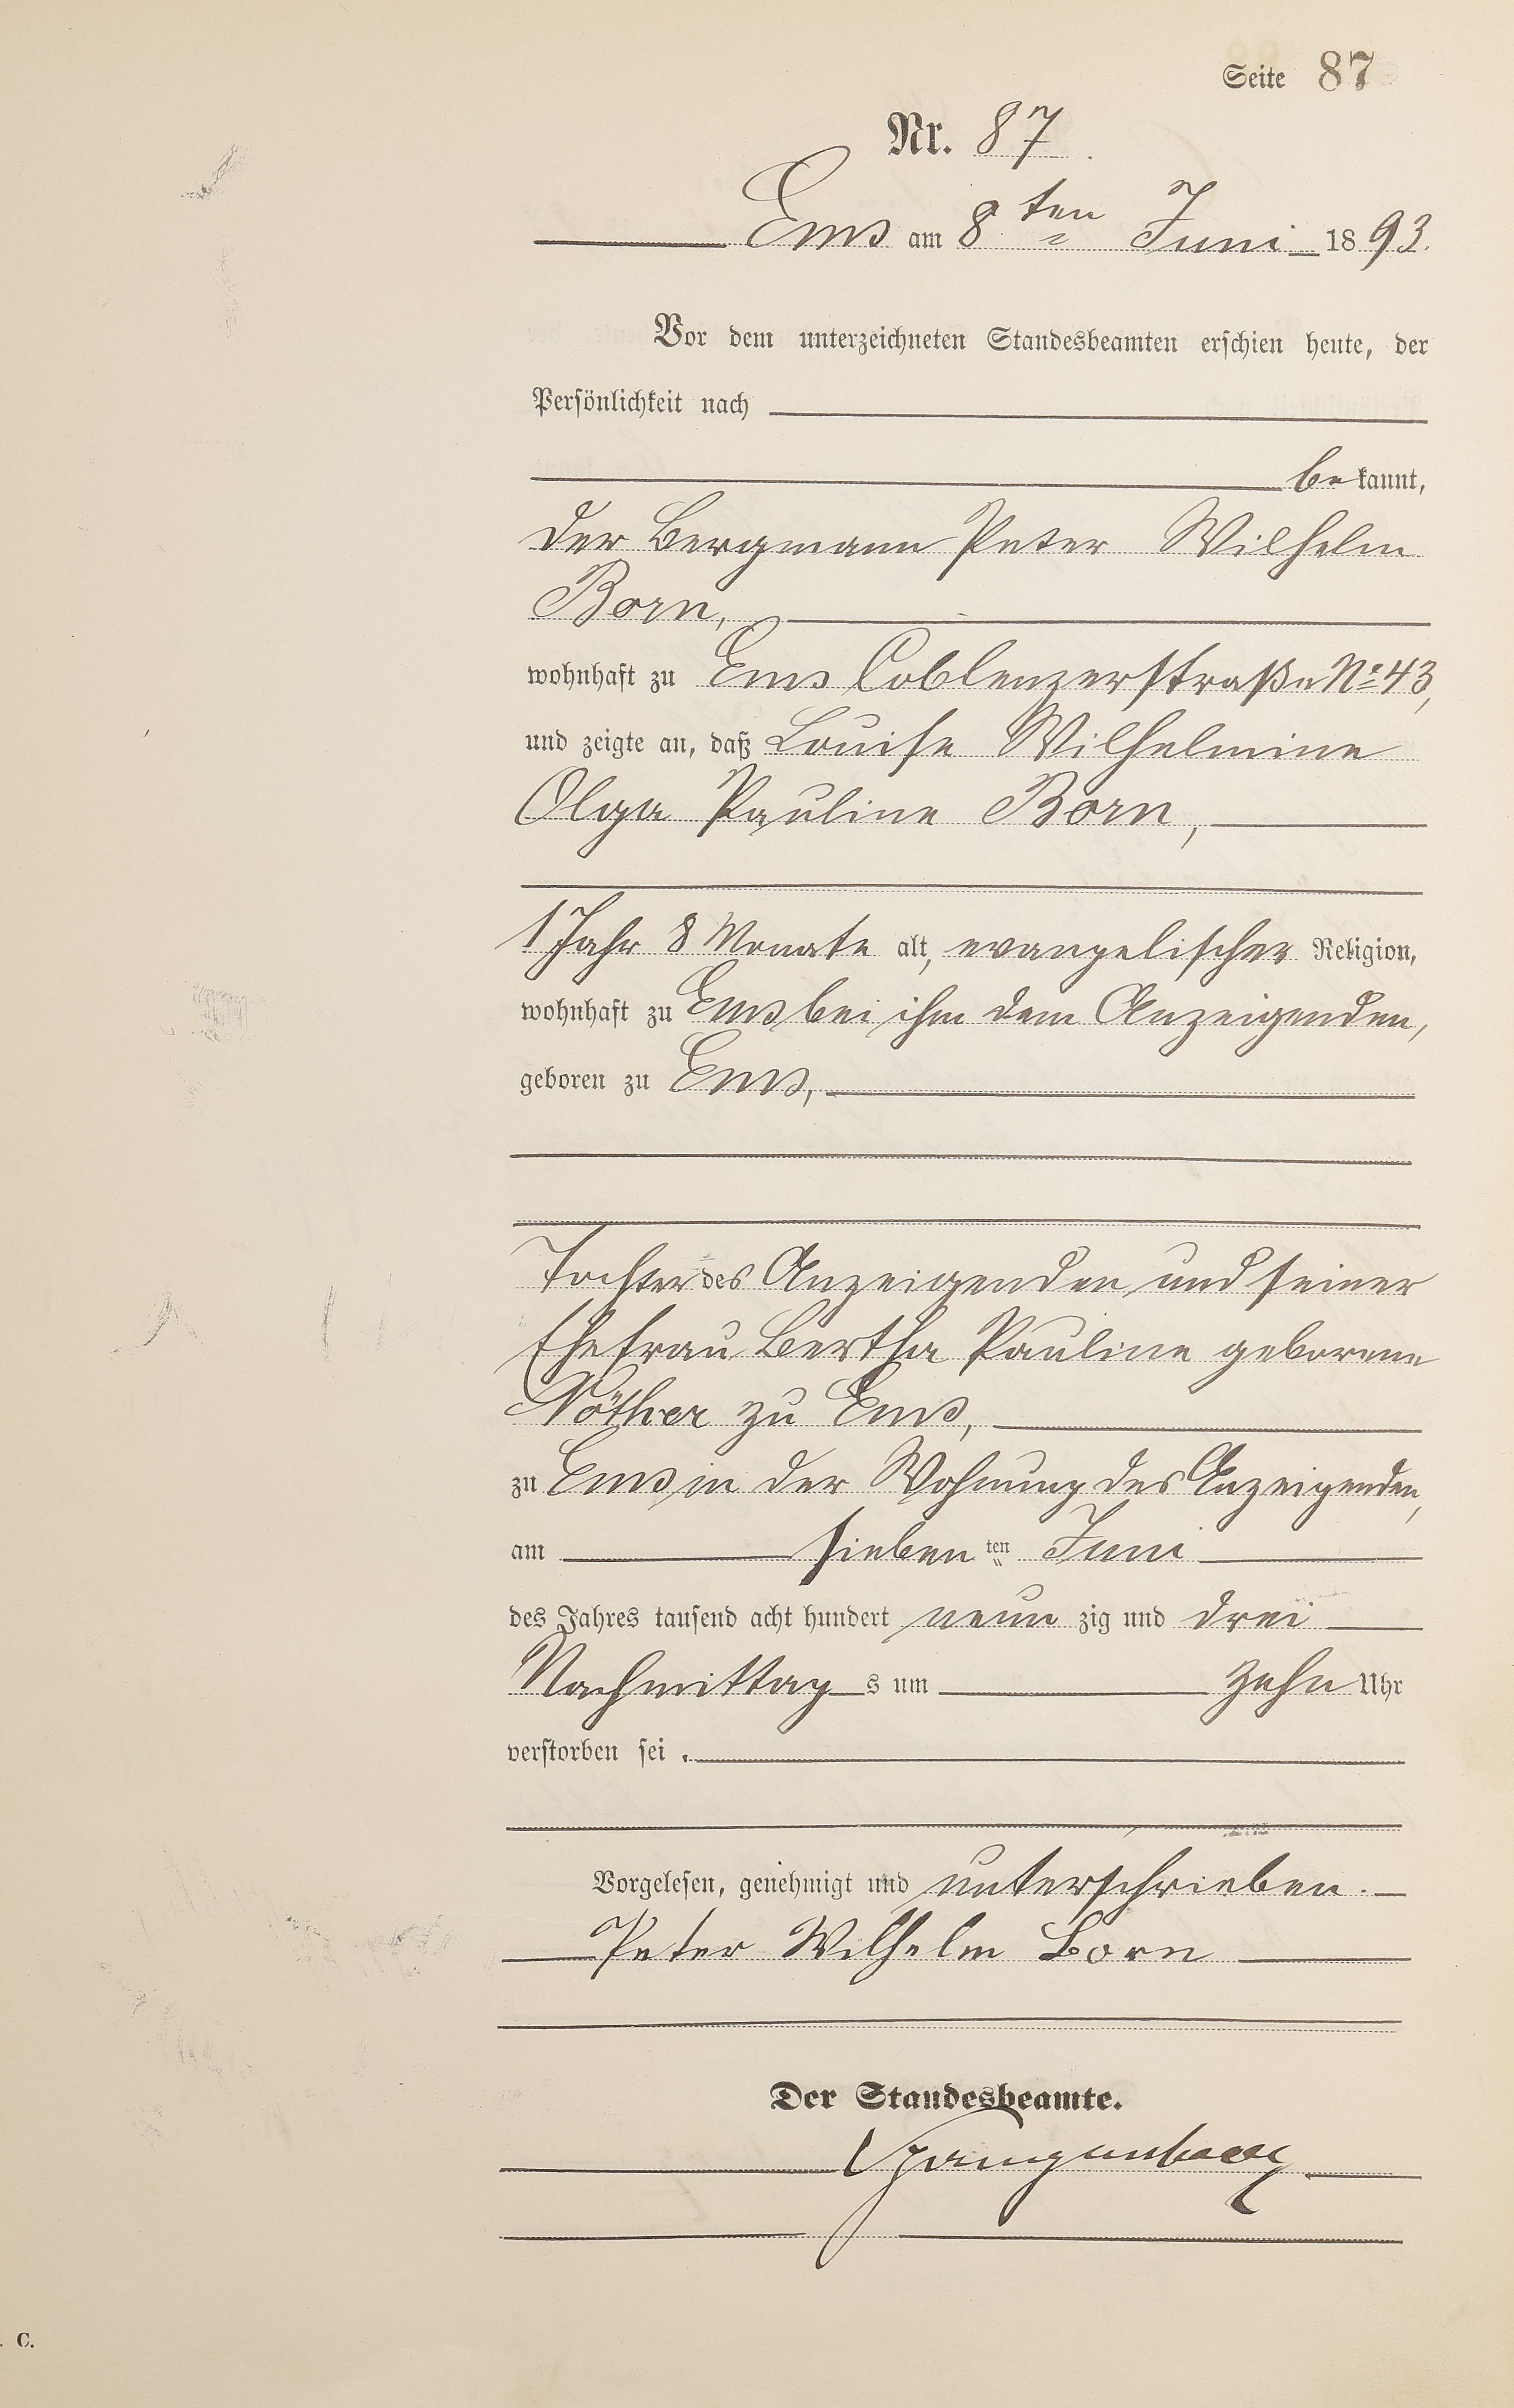 Seite 87
Nr. 87.
Ems am 8ten Juni 1893.
Vor dem unterzeichneten Standesbeamten erschien heute, der
Persönlichkeit nach
bekannt,
der Bergmann Peter Wilhelm
Born,
wohnhaft zu Ems Coblenzerstraße No 43,
und zeigte an, daß Louise Wilhelmine
Olga Pauline Born,
1 Jahr 8 Monate alt, evangelischer Religion,
wohnhaft zu Ems bei ihm dem Anzeigenden,
geboren zu Ems,
Tochter des Anzeigenden und seiner
Ehefrau Bertha Pauline geborene
Nöther zu Ems,
zu Ems in der Wohnung des Anzeigenden,
am siebenten Juni
des Jahres tausend acht hundert neunzig und drei
Nachmittags um zehn Uhr
verstorben sei.
Vorgelesen, genehmigt und unterschrieben.
Peter Wilhelm Born
Der Standesbeamte.
C.